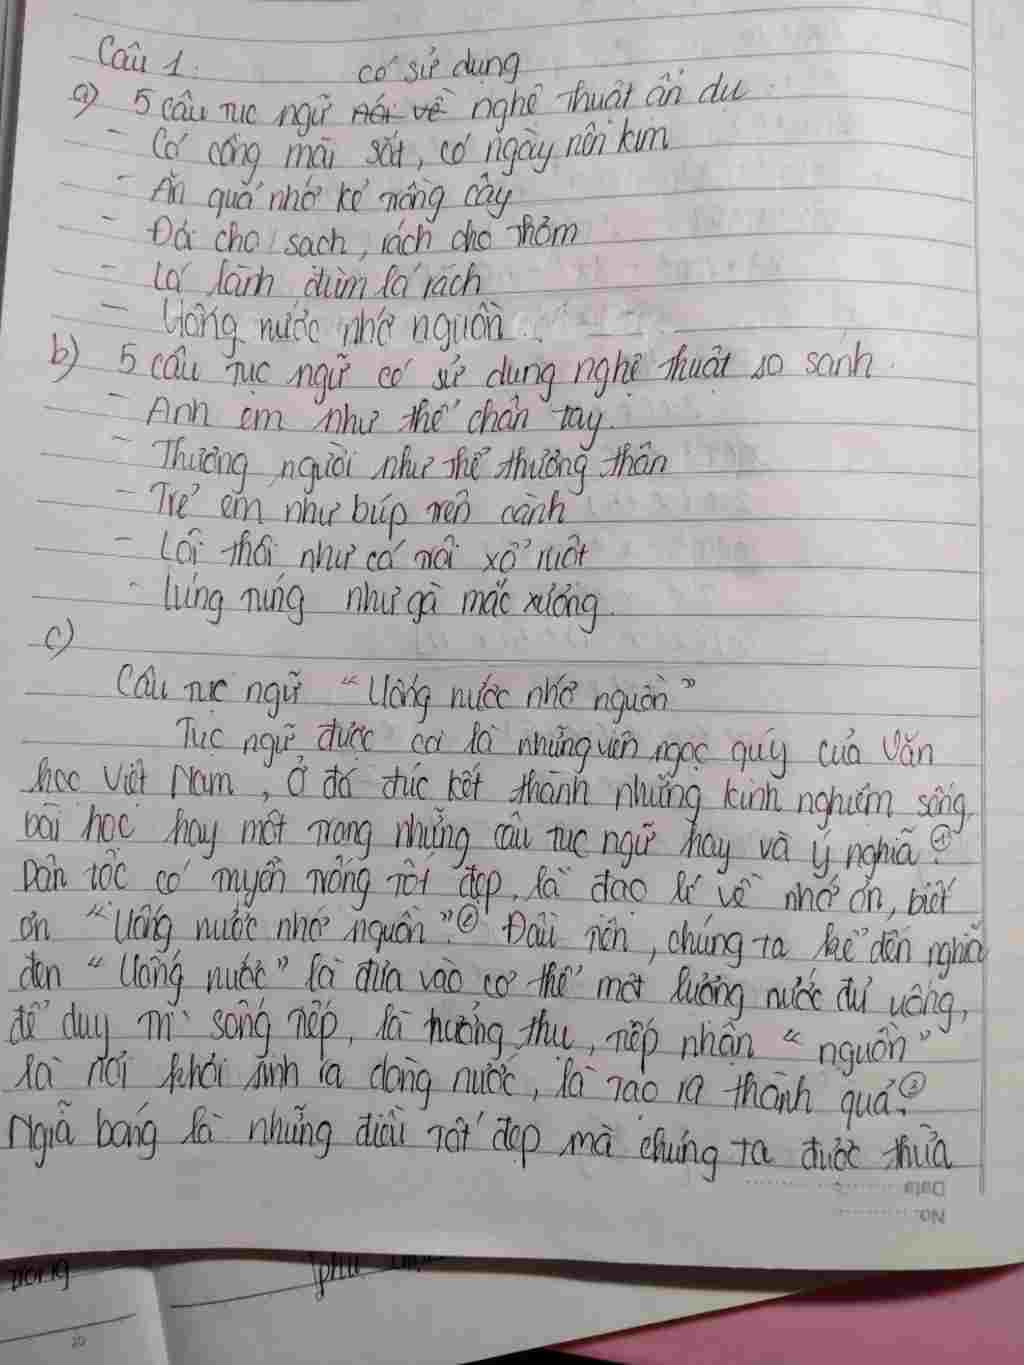 Câu 1:
có sử dụng
a) 5 câu tục ngữ nói về nghệ thuật ẩn dụ.
- Có công mài sắt, có ngày nên kim
- Ăn quả nhớ kẻ trồng cây
- Đói cho sạch, rách cho thơm
- Lá lành đùm lá rách
- Uống nước nhớ nguồn.
b) 5 câu tục ngữ có sử dụng nghệ thuật so sánh.
- Anh em như thể chân tay.
- Thương người như thể thương thân
- Trẻ em như búp trên cành
- Lôi thôi như cá trôi xổ ruột
- lúng túng như gà mắc xương.
c)
Câu tục ngữ "Uống nước nhớ nguồn"
Tục ngữ được coi là những viên ngọc quý của Văn
học Việt Nam, Ở đó đúc kết thành những kinh nghiệm sống,
bài học hay một trong những câu tục ngữ hay và ý nghĩa ①
Dân tộc có truyền thống tốt đẹp, là đạo lí về nhớ ơn, biết
ơn "Uống nước nhớ nguồn". ② Đầu tiên, chúng ta kể đến nghĩa
đen "Uống nước" là đưa vào cơ thể một lượng nước đủ uống,
để duy trì sống tiếp, là hưởng thụ, tiếp nhận "nguồn"
là nơi khởi sinh ra dòng nước, là tạo ra thành quả. ③
Ngiã bóng là những điều tốt đẹp mà chúng ta được thừa
Date
No.
trong
phụ
20